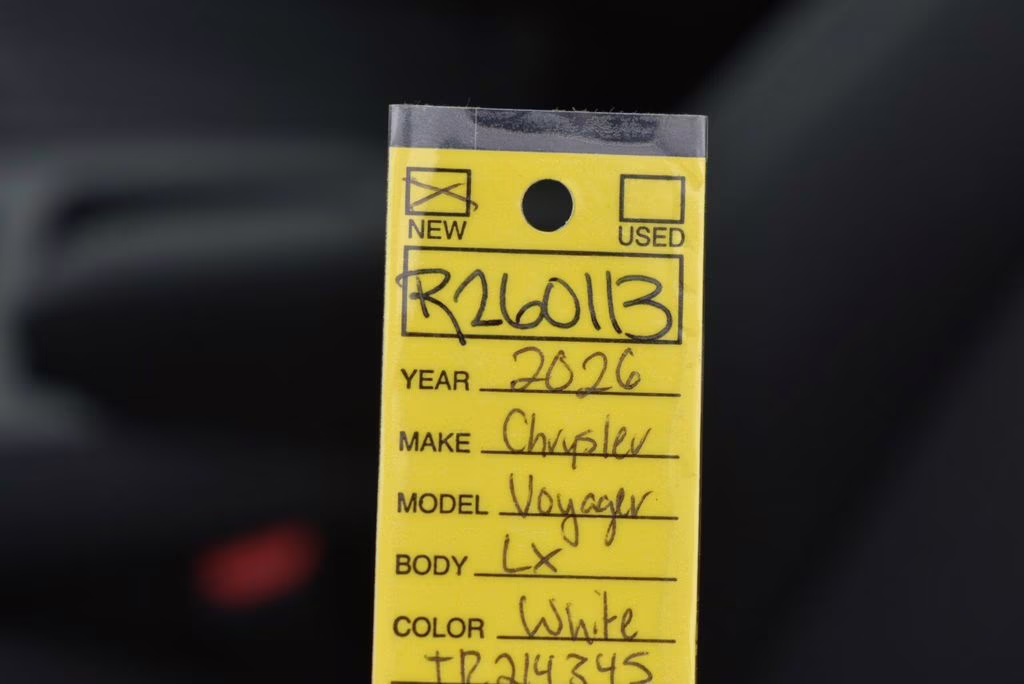 NEW USED
R260113
YEAR 2026
MAKE Chrysler
MODEL Voyager
BODY LX
COLOR White
TR214345